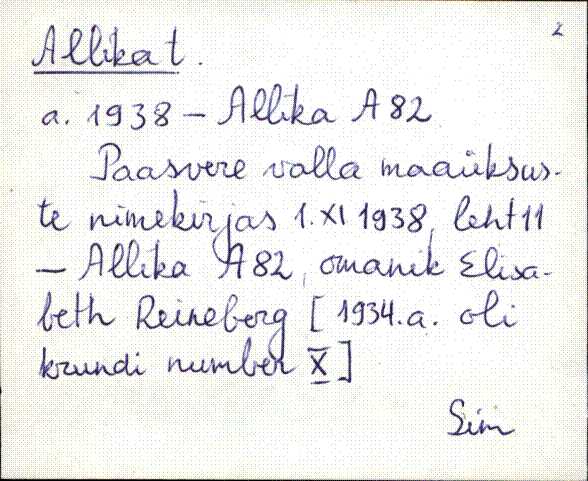 2
Allika t.
a. 1938 – Allika A 82
Paasvere valla maaüksus-
te nimekirjas 1. XI 1938, leht 11
– Allika A 82, omanik Elisa-
beth Reineberg [1934. a. oli
krundi number X]
Sim